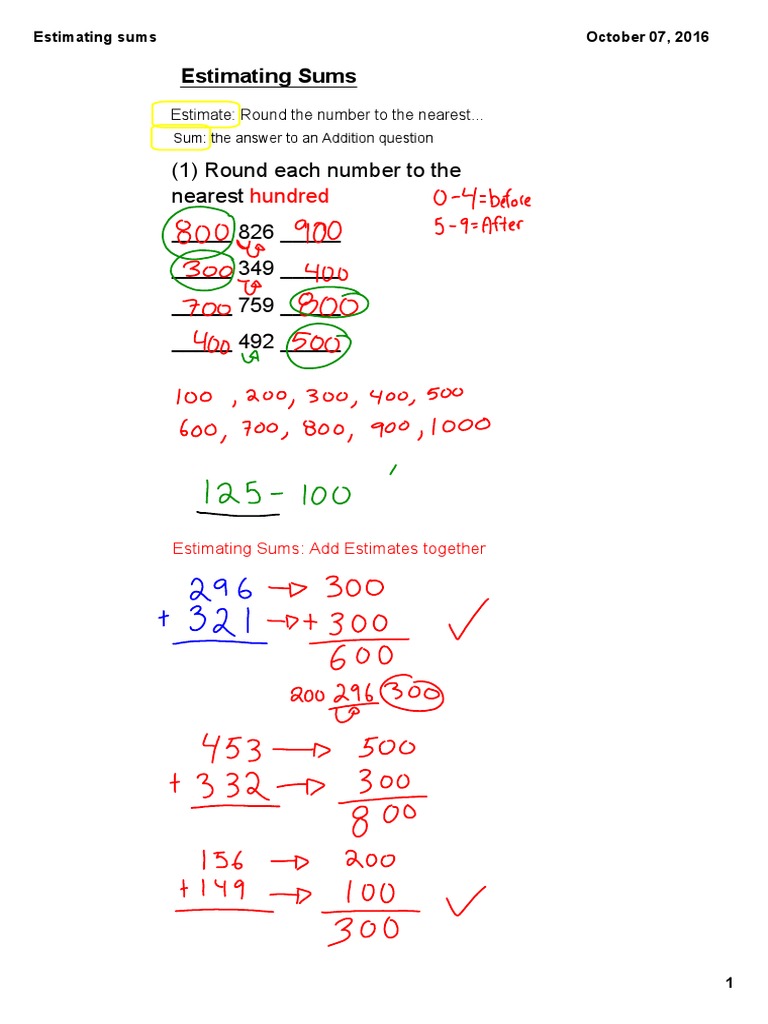 Estimating sums October 07, 2016
Estimating Sums
Estimate: Round the number to the nearest...
Sum: the answer to an Addition question
(1) Round each number to the
nearest hundred
0-4=before
5-9=After
800 826 900
300 349 400
700 759 800
400 492 500
100 , 200, 300, 400, 500
600, 700, 800, 900, 1000
125 - 100
Estimating Sums: Add Estimates together
296 → 300
+ 321 → + 300
600
200 296 300
453 → 500
+ 332 → 300
800
156 → 200
+ 149 → 100
300
1